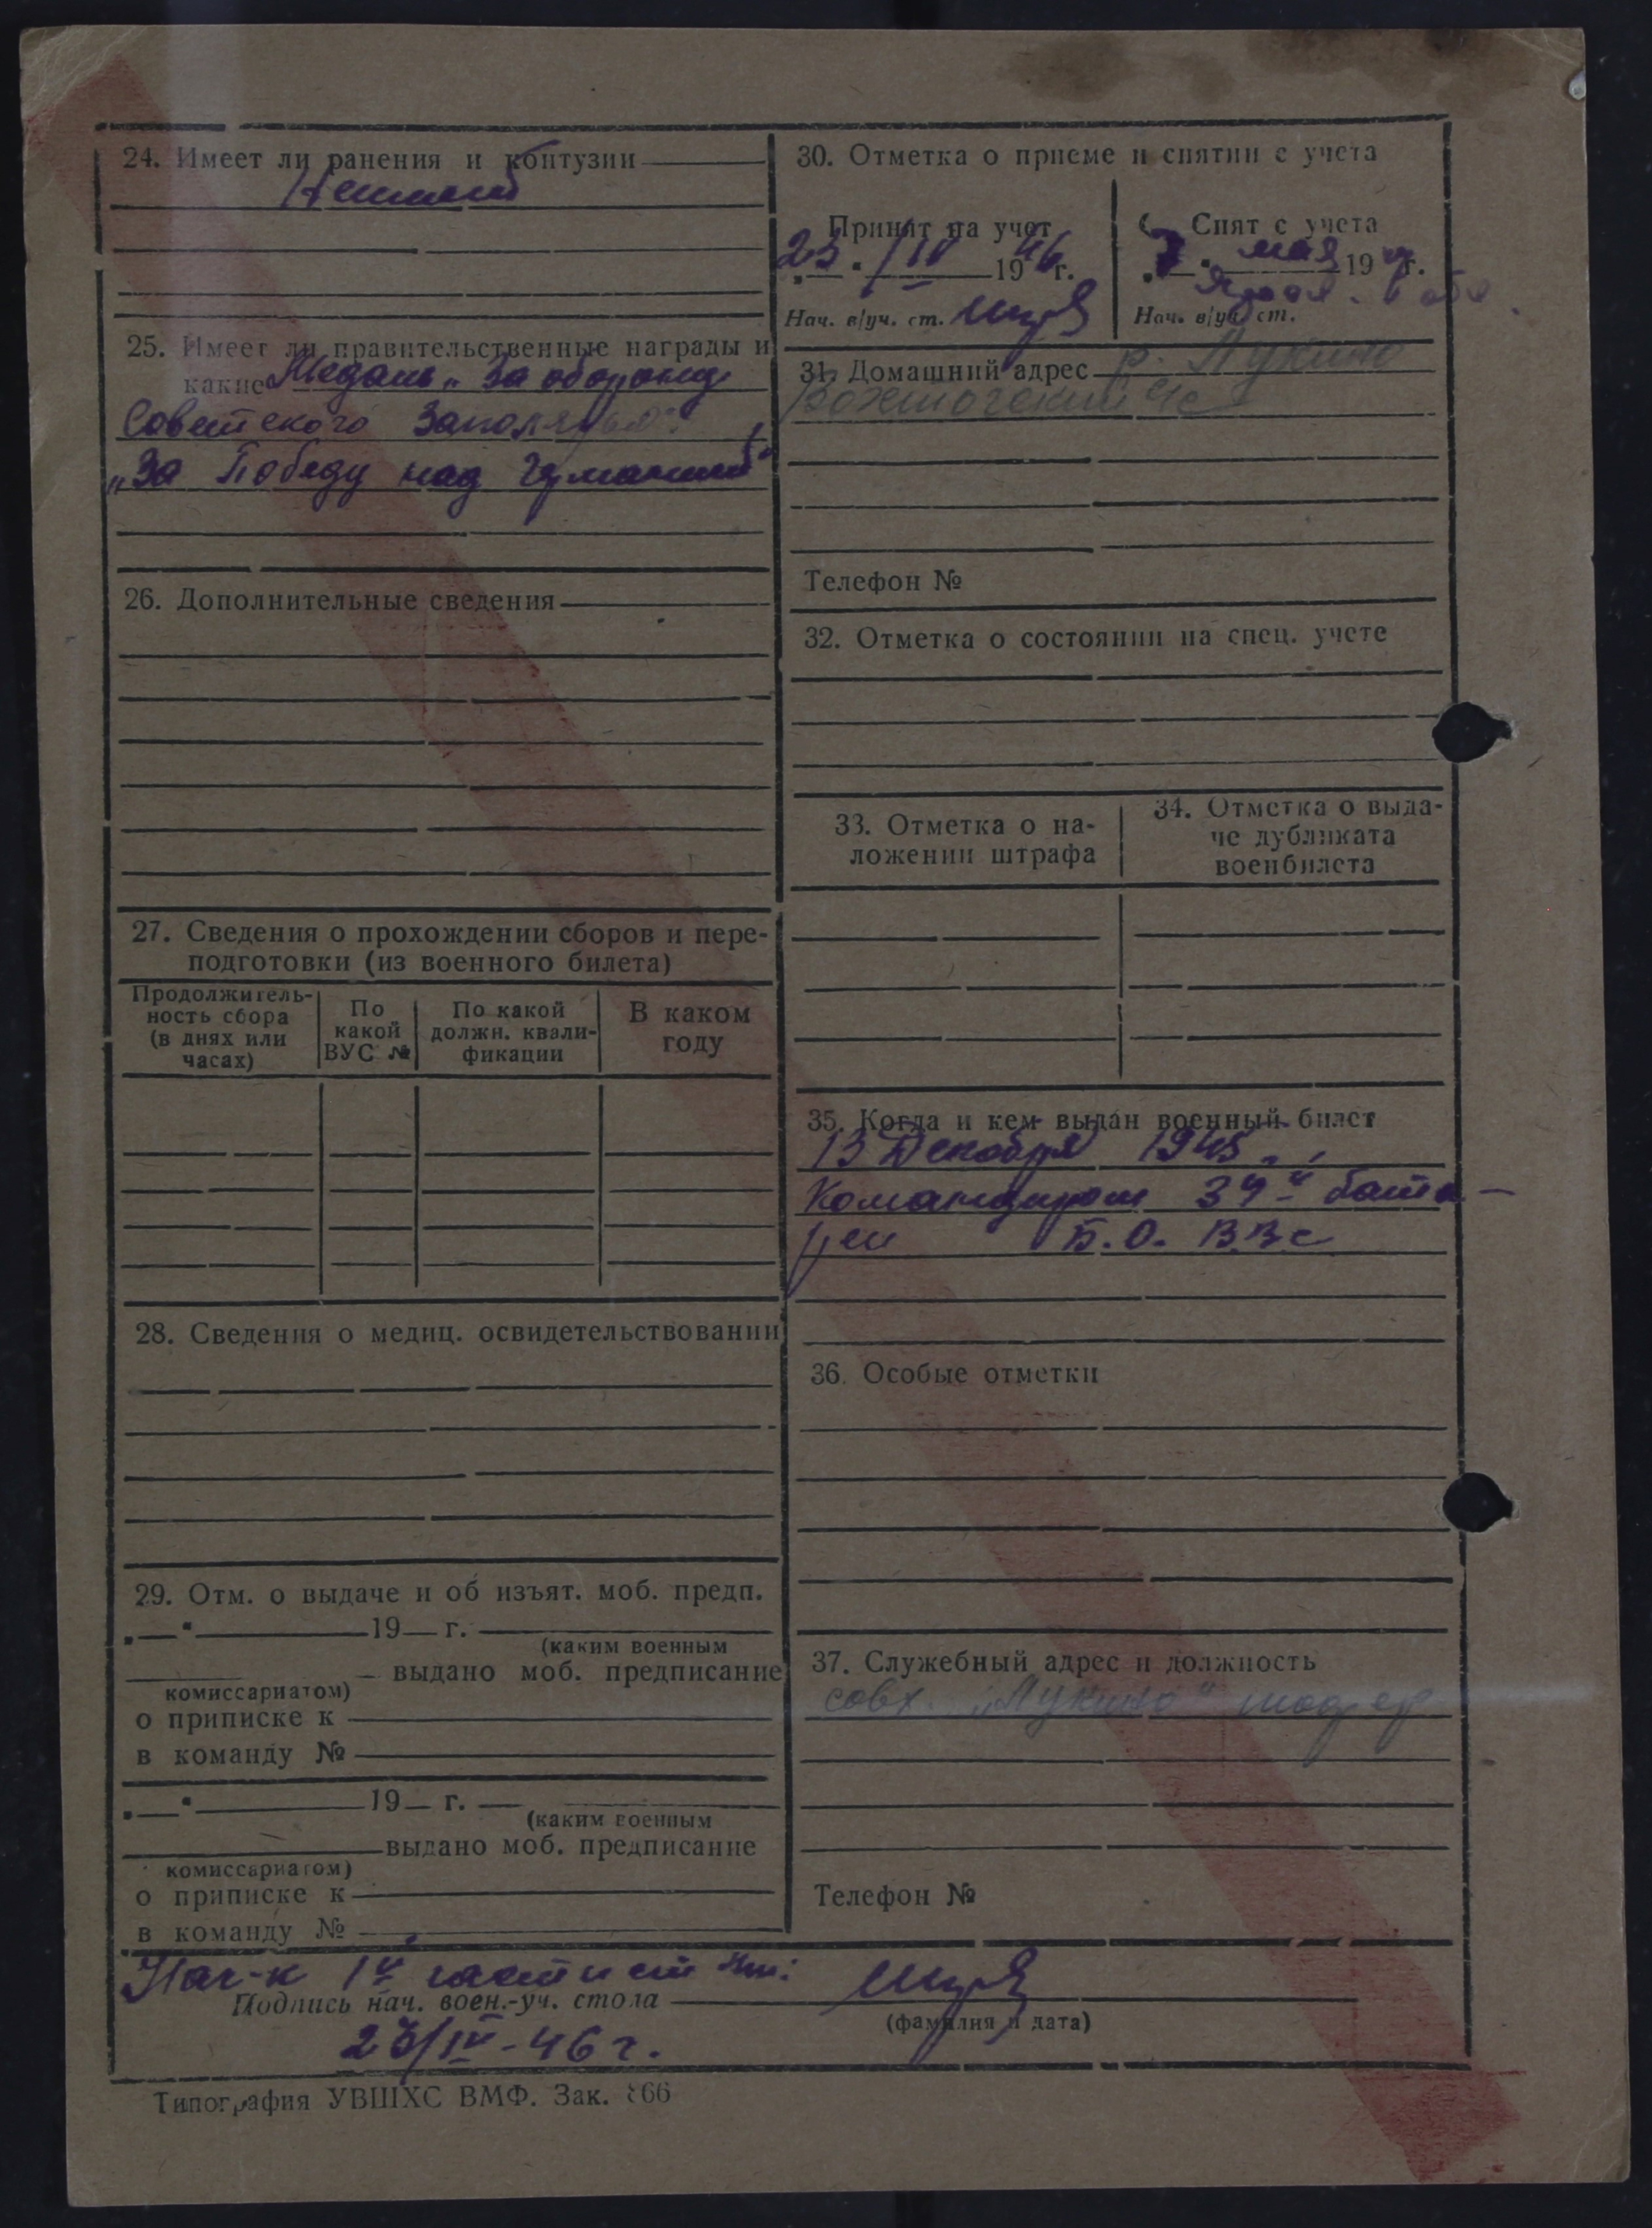 24. Имеет ли ранения и контузии
25. Имеет ли правительственные награды и
какие Медаль „За оборону
Советского Заполярья"
„За Победу над Германией"
26. Дополнительные сведения
27. Сведения о прохождении сборов и пере-
подготовки (из военного билета)
Продолжитель-
ность сбора
(в днях или
часах)
По
какой
ВУС №
По какой
должн. квали-
фикации
В каком
году
28. Сведения о медиц. освидетельствовании
29. Отм. о выдаче и об изъят. моб. предп.
19 г.
(каким военным
выдано моб. предписание
комиссариатом)
о приписке к
в команду №
19 г.
(каким военным
выдано моб. предписание
комиссариатом)
о приписке к
в команду №
30. Отметка о приеме и снятии с учета
Принят на учет
23 /IV 1946 г.
Нач. в/уч. ст.
Снят с учета
мая 19 г.
Нач. в/уч. ст.
31. Домашний адрес Лукино
Телефон №
32. Отметка о состоянии на спец. учете
33. Отметка о на-
ложении штрафа
34. Отметка о выда-
че дубликата
военбилета
35. Когда и кем выдан военный билет
13 Декабря 1945
Командиром батa-
реи Б.О. ВВС
36. Особые отметки
37. Служебный адрес и должность
совх. „Лукино"
Телефон №
Нач-к 1й части
Подпись нач. воен.-уч. стола
(фамилия и дата)
23/IV-46 г.
Типография УВШХС ВМФ. Зак. 866